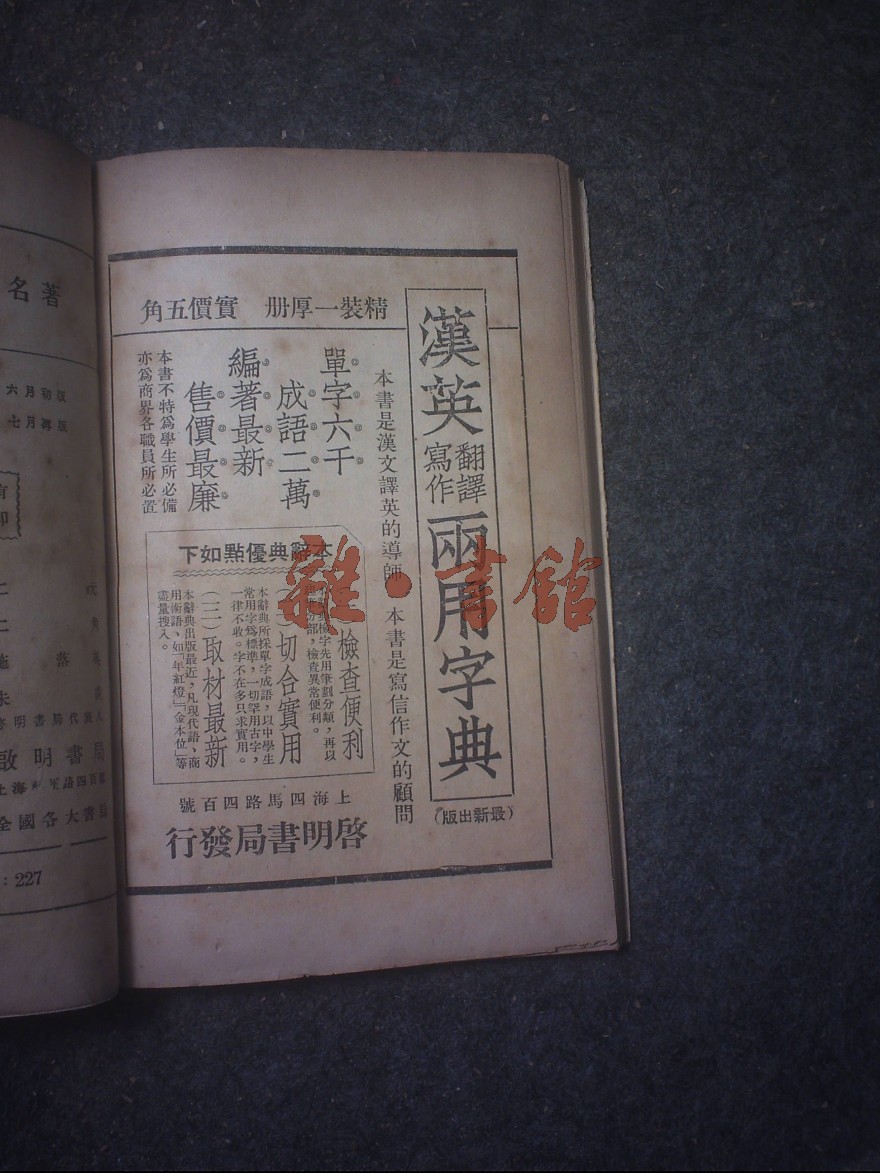 漢英翻譯寫作兩用字典
(最新出版)
精裝一厚册 實價五角
本書是漢文譯英的導師 本書是寫信作文的顧問
單字六千
成語二萬
編著最新
售價最廉
本書不特爲學生所必備
亦爲商界各職員所必置
本辭典優點如下
檢查便利
檢字先用筆劃分類,再以
部,檢查異常便利。
(二)切合實用
本辭典所採單字成語,以中學生
常用字爲標準,一切罕用古字,
一律不收。字不在多只求實用。
(三)取材最新
本辭典出版最近,凡現代語、商
用術語、如「年紅燈」「金本位」等
盡量搜入。
上海四馬路四百號
啓明書局發行
雜·書館
名著
六月初版
七月再版
啟明書局
全國各大書
: 227